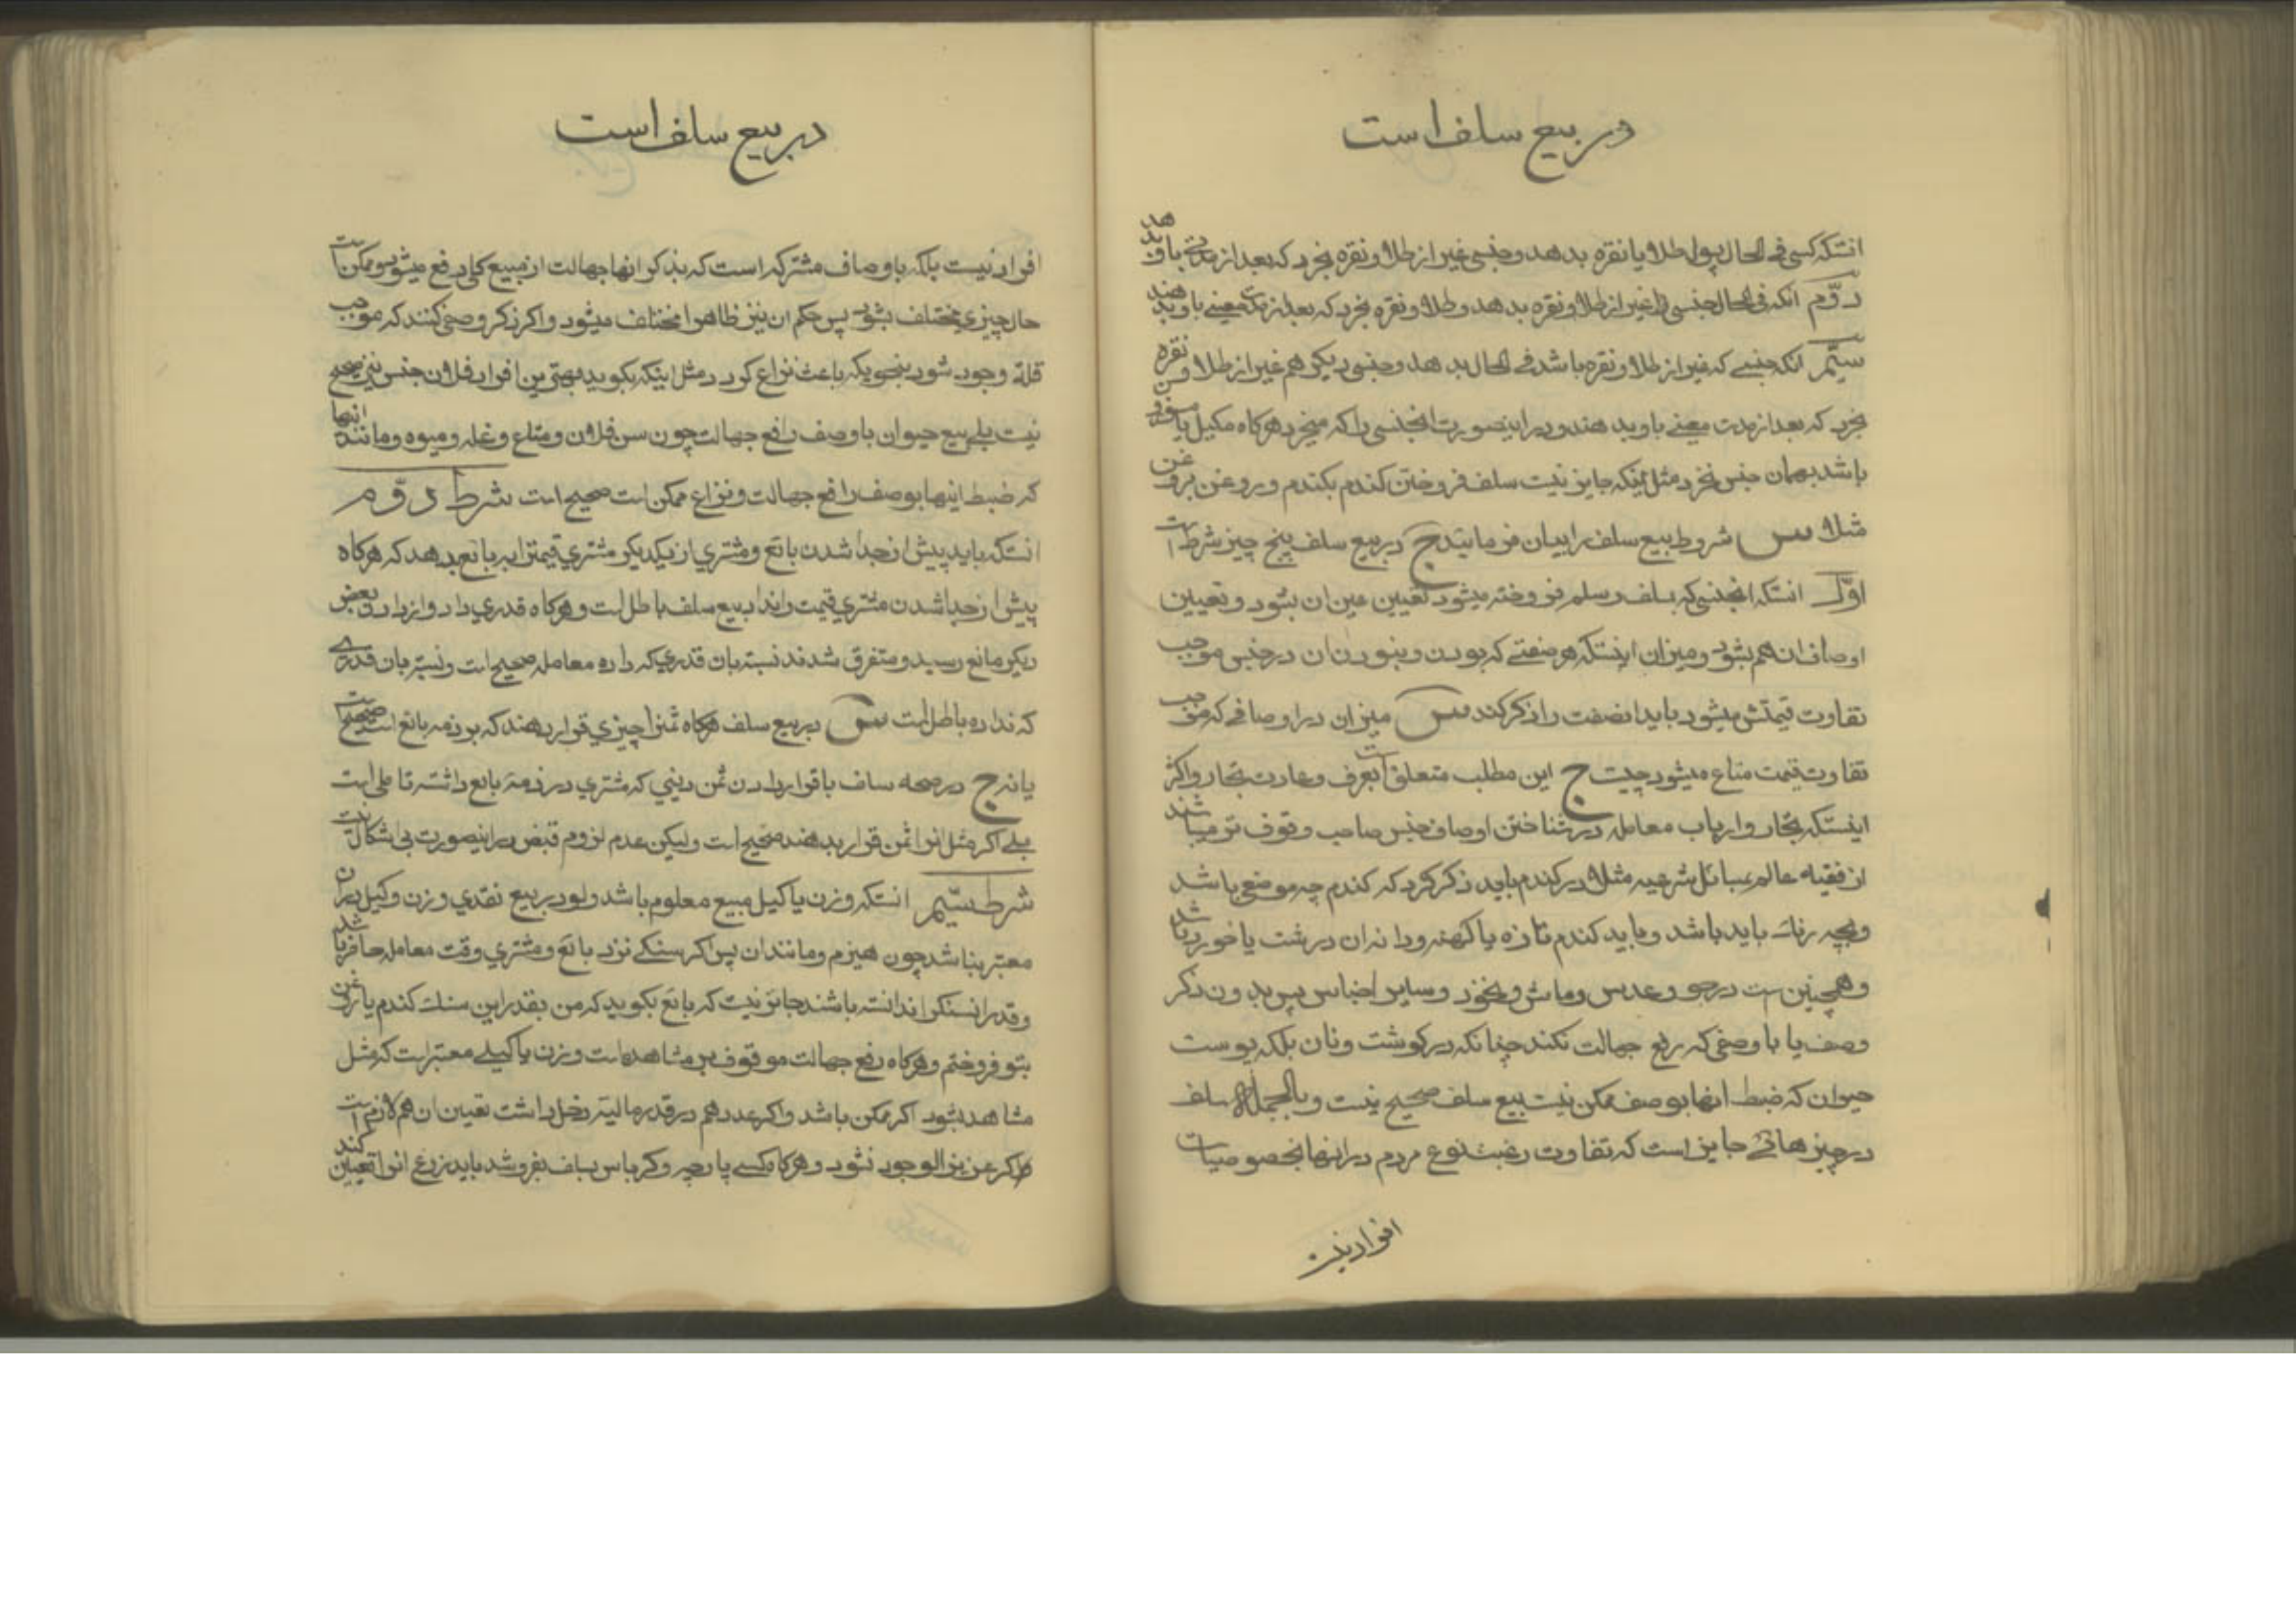 در بیع سلف است
انستکه کسی فی الحال پول طلا یا نقره بدهد و جنسی غیر از طلا و نقره بخرد که بعد از مدتی باو بدهد
دوّم انکه فی الحال جنسی را غیر از طلا و نقره بدهد و طلا و نقره بخرد که بعد از مدت معینی باو بدهند
سیّم انکه جنسی که غیر از طلا و نقره باشد فی الحال بدهد و جنسی دیکر هم غیر از طلا و نقره
بخرد که بعد از مدت معینی باو بدهند و در اینصورت انجنسی را که میخرد هرکاه مکیل یا موزون
باشد بهمان جنس نخرد مثل اینکه جایز نیت سلف فروختن کندم بکندم و روغن بروغن
مثلا س شروط بیع سلف را بیان فرمائید ج در بیع سلف پنج چیز شرط است
اوّل انستکه انجنسی که بسلف و سلم فروخته میشود تعیین عین ان بشود و تعیین
اوصاف ان هم بشود و میزان اینستکه هر صفتی که بودن و نبودن ان در جنس موجب
تفاوت قیمتش میشود باید انصفت را ذکر کنند س میزان در اوصافی که موجب
تفاوت قیمت متاع میشود چیست ج این مطلب متعلق است بعرف و عادت تجار و اکثر
اینستکه تجار و ارباب معامله در شناختن اوصاف جنس صاحب وقوف تر میباشند
از فقیه عالم بمسائل شرعیه مثلا در کندم باید ذکر کرد که کندم چه موضعی باشد
و بچه رنك باید باشد و باید کندم تازه یا کهنه و دانه ان درشت یا خورد باشد
و همچنین ست در جو و عدس و ماش و نخود و سایر اجناس پس بدون ذکر
وصف یا با وصفی که رفع جهالت نکند چنانکه در کوشت و نان بلکه پوست
حیوان که ضبط انها بوصف ممکن نیت بیع سلف صحیح نیست و بالجمله سلف
در چیزهائی جایز است که تفاوت رغبت نوع مردم در انها بخصوصیات
افراد نیست
در بیع سلف است
افراد نیست بلکه باوصاف مشترکه است که بذکر انها جهالت از مبیع کلی رفع میشود و ممکن است
حال چیزی مختلف بشود پس حکم ان نیز ظاهرا مختلف میشود و اکر ذکر وصفی کنند که موجب
قلة وجود شود بنحویکه باعث نزاع کردد مثل اینکه بکوید بهترین افراد فلان جنس نیز صحیح
نیت بلی بیع حیوان با وصف رافع جهالت چون سن فلان و متاع و غله و میوه و مانند انها
که ضبط اینها بوصف رافع جهالت و نزاع ممکن است صحیح است شرط دوّم
انستکه باید پیش از جدا شدن بائع و مشتری از یکدیکر مشتری قیمترا به بائع بدهد که هرکاه
پیش از جدا شدن مشتری قیمت را نداد بیع سلف باطل است و هرکاه قدری داد و از دادن بعض
دیکر مانع رسید و متفرق شدند نسبة بان قدری که داده معامله صحیح است و نسبة بان قدری
که نداده باطل است س در بیع سلف هرکاه ثمنرا چیزی قرار دهند که بر ذمه بائع است صحیح است
یا نه ج در صحه سلف با قرار دادن ثمن دینی که مشتری در ذمه بائع داشته تاملی است
بلی اکر مثل انرا ثمن قرار بدهند صحیح است ولیکن عدم لزوم قبض در اینصورت بی اشکال نیت
شرط سیّم انستکه وزن یا کیل مبیع معلوم باشد ولو در بیع نقدی وزن و کیل در ان
معتبر نباشد چون هیزم و مانند ان پس اکر سنکی نزد بائع و مشتری وقت معامله حاضر باشد
و قدر انسنك را ندانسته باشند جائز نیت که بائع بکوید که من بقدر این سنك کندم یا روغن
بتو فروختم و هرکاه رفع جهالت موقوف بر مشاهده است وزن یا کیلی معتبر است که مثل
مشاهده بشود اکر ممکن باشد و اکر عدد هم در قدر مالیة دخل داشت تعیین ان هم لازم است
اکر عزیز الوجود نشود و هرکاه کسی پارچه و کرباس بسلف بفروشد باید بذرع انرا تعیین کند